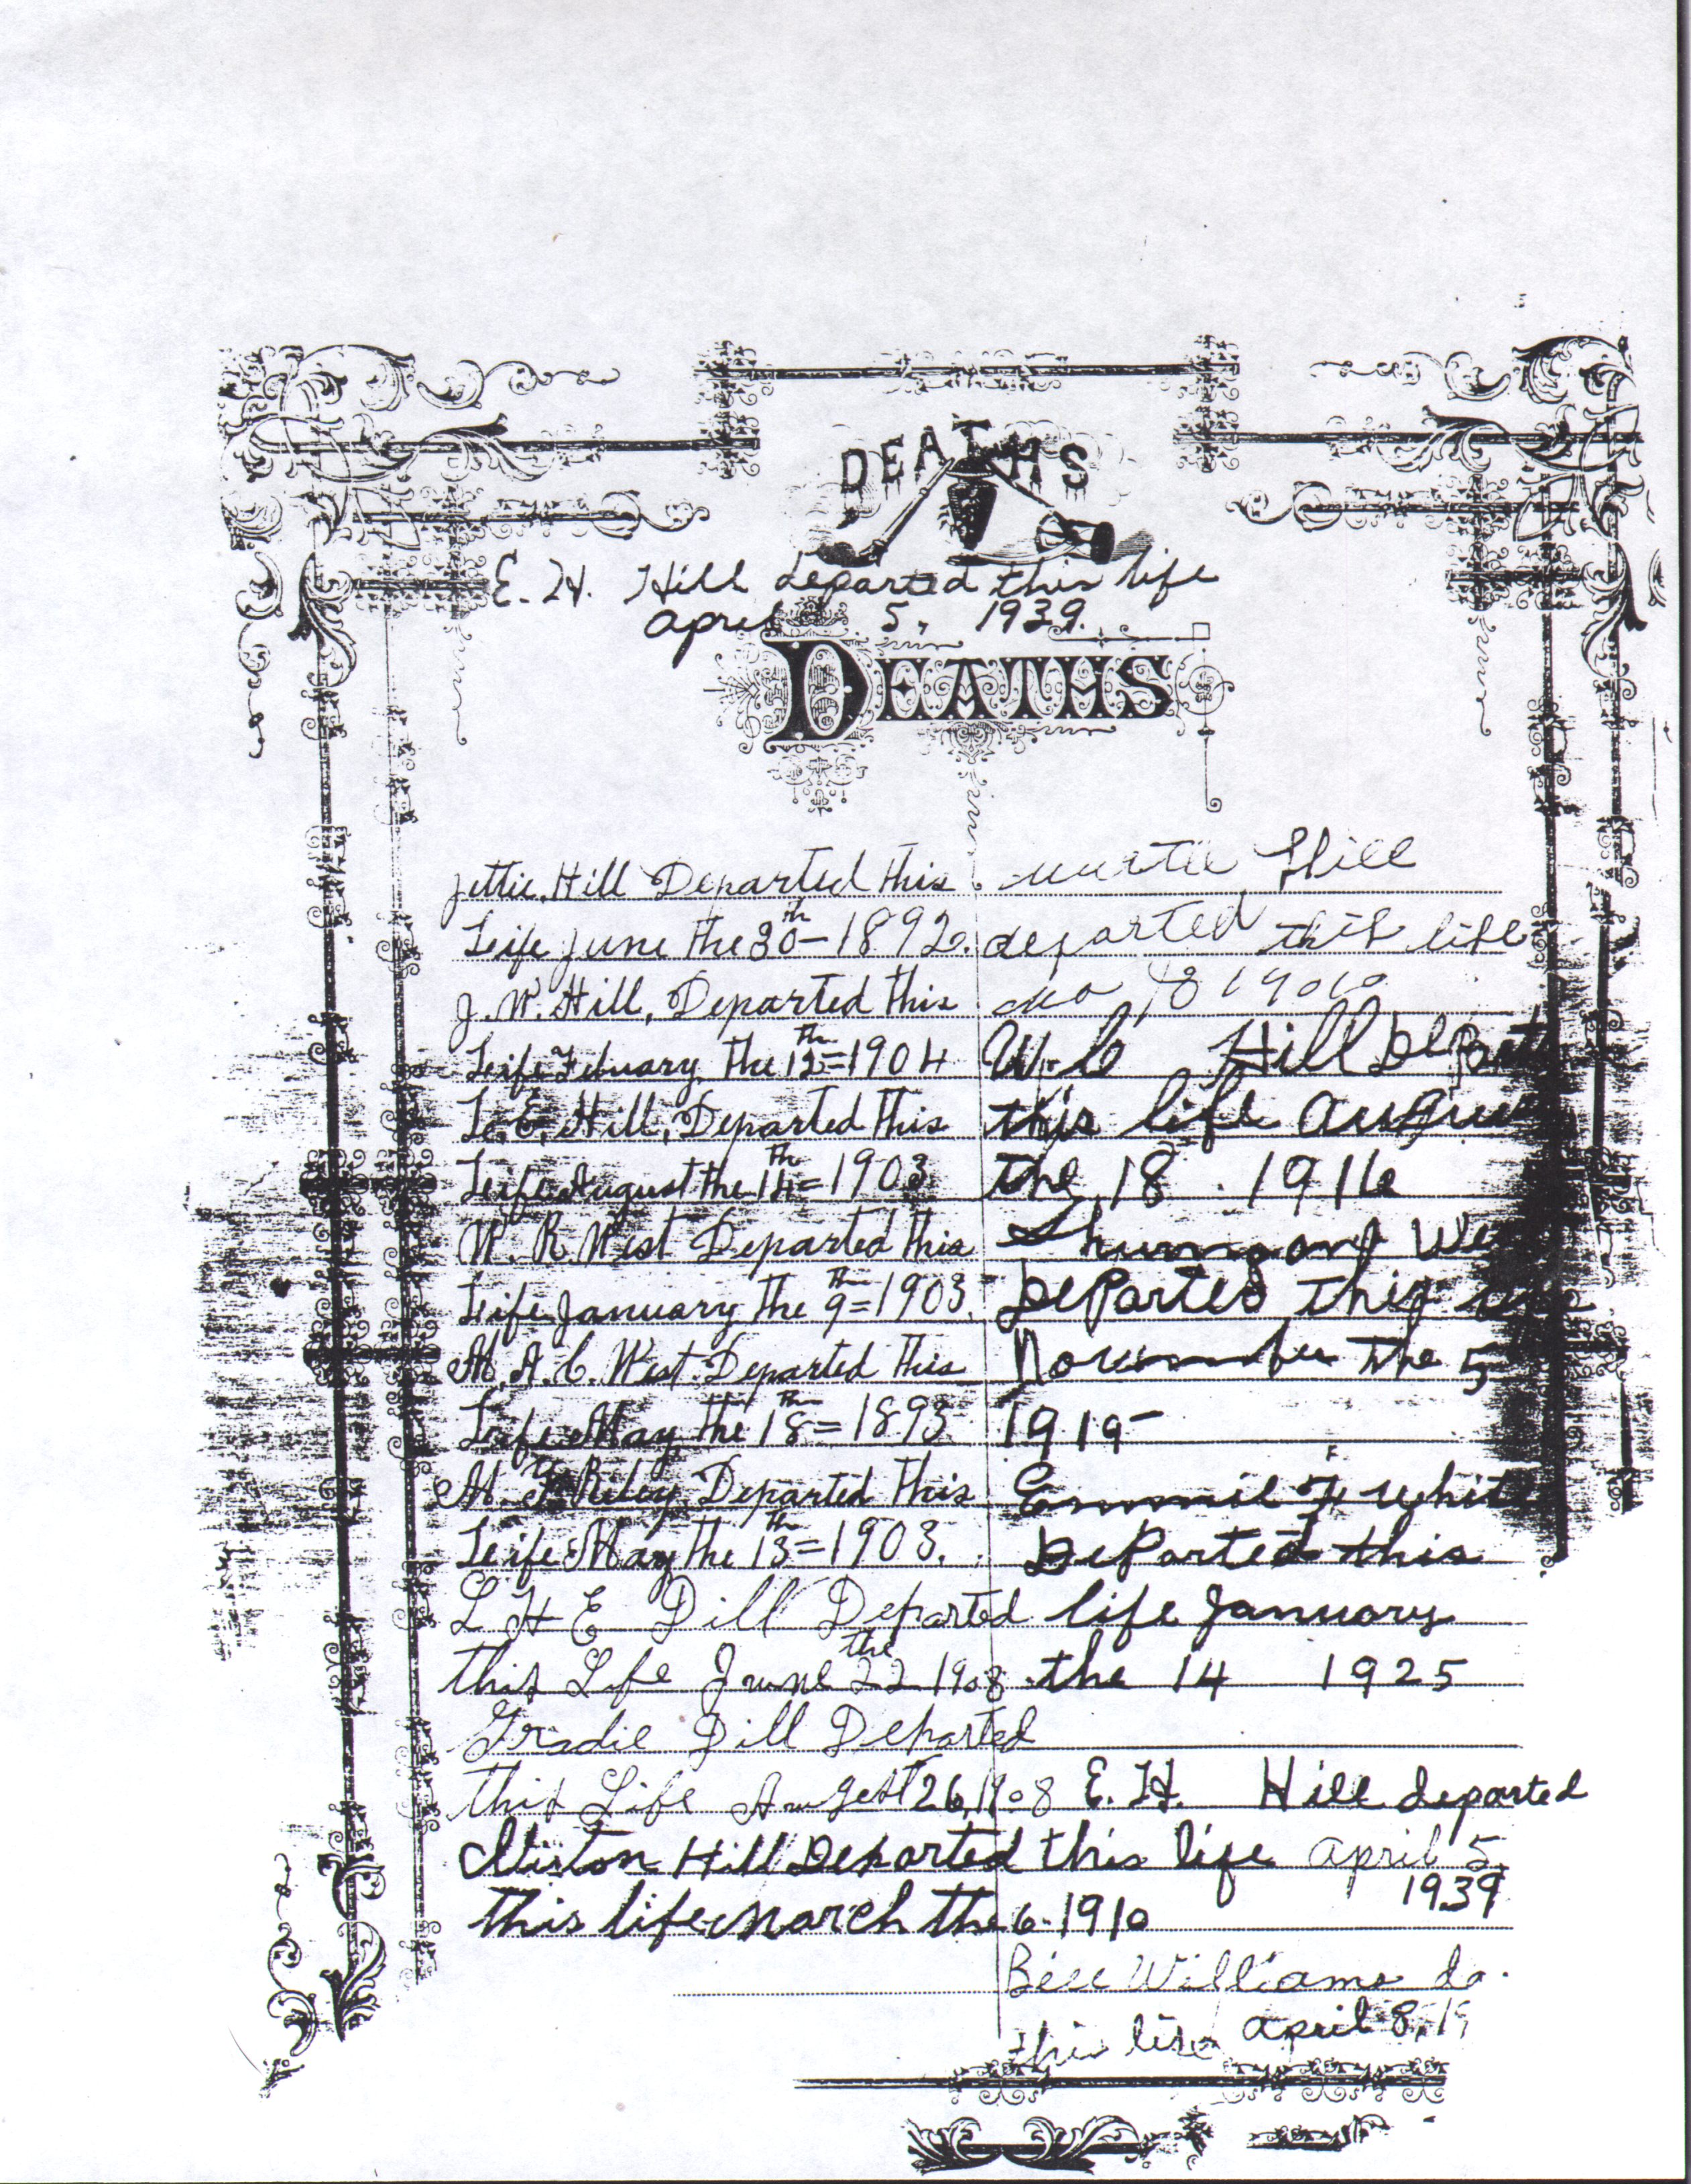 DEATHS
E. H. Hill departed this life
april 5, 1939.
DEATHS
Jettie Hill Departed this
Leife June the 30th - 1892.
J. W. Hill, Departed this
Leife Febuary the 12th = 1904
L. E. Hill, Departed this
Leife August the 14th = 1903
W. R. West Departed this
Leife January the 9th = 1903.
M. A. C. West Departed this
Leife May the 18th = 1893
M. F. Riley Departed this
Leife May the 13th = 1903.
L H E Dill Departed
this Life June the 22 1908
Gradie Dill Departed
this Life Augest 26, 1908
Hill Departed
this life march the 6. 1910
Hill
departed this life
18 1910
Hill Depart
this life augus
the 18. 1916
We
Departed this
November the 5
1919
Emmie F White
Departed this
life January
the 14 1925
E. H. Hill departed
this life april 5,
1939
Bill Williams
this life april 8, 19